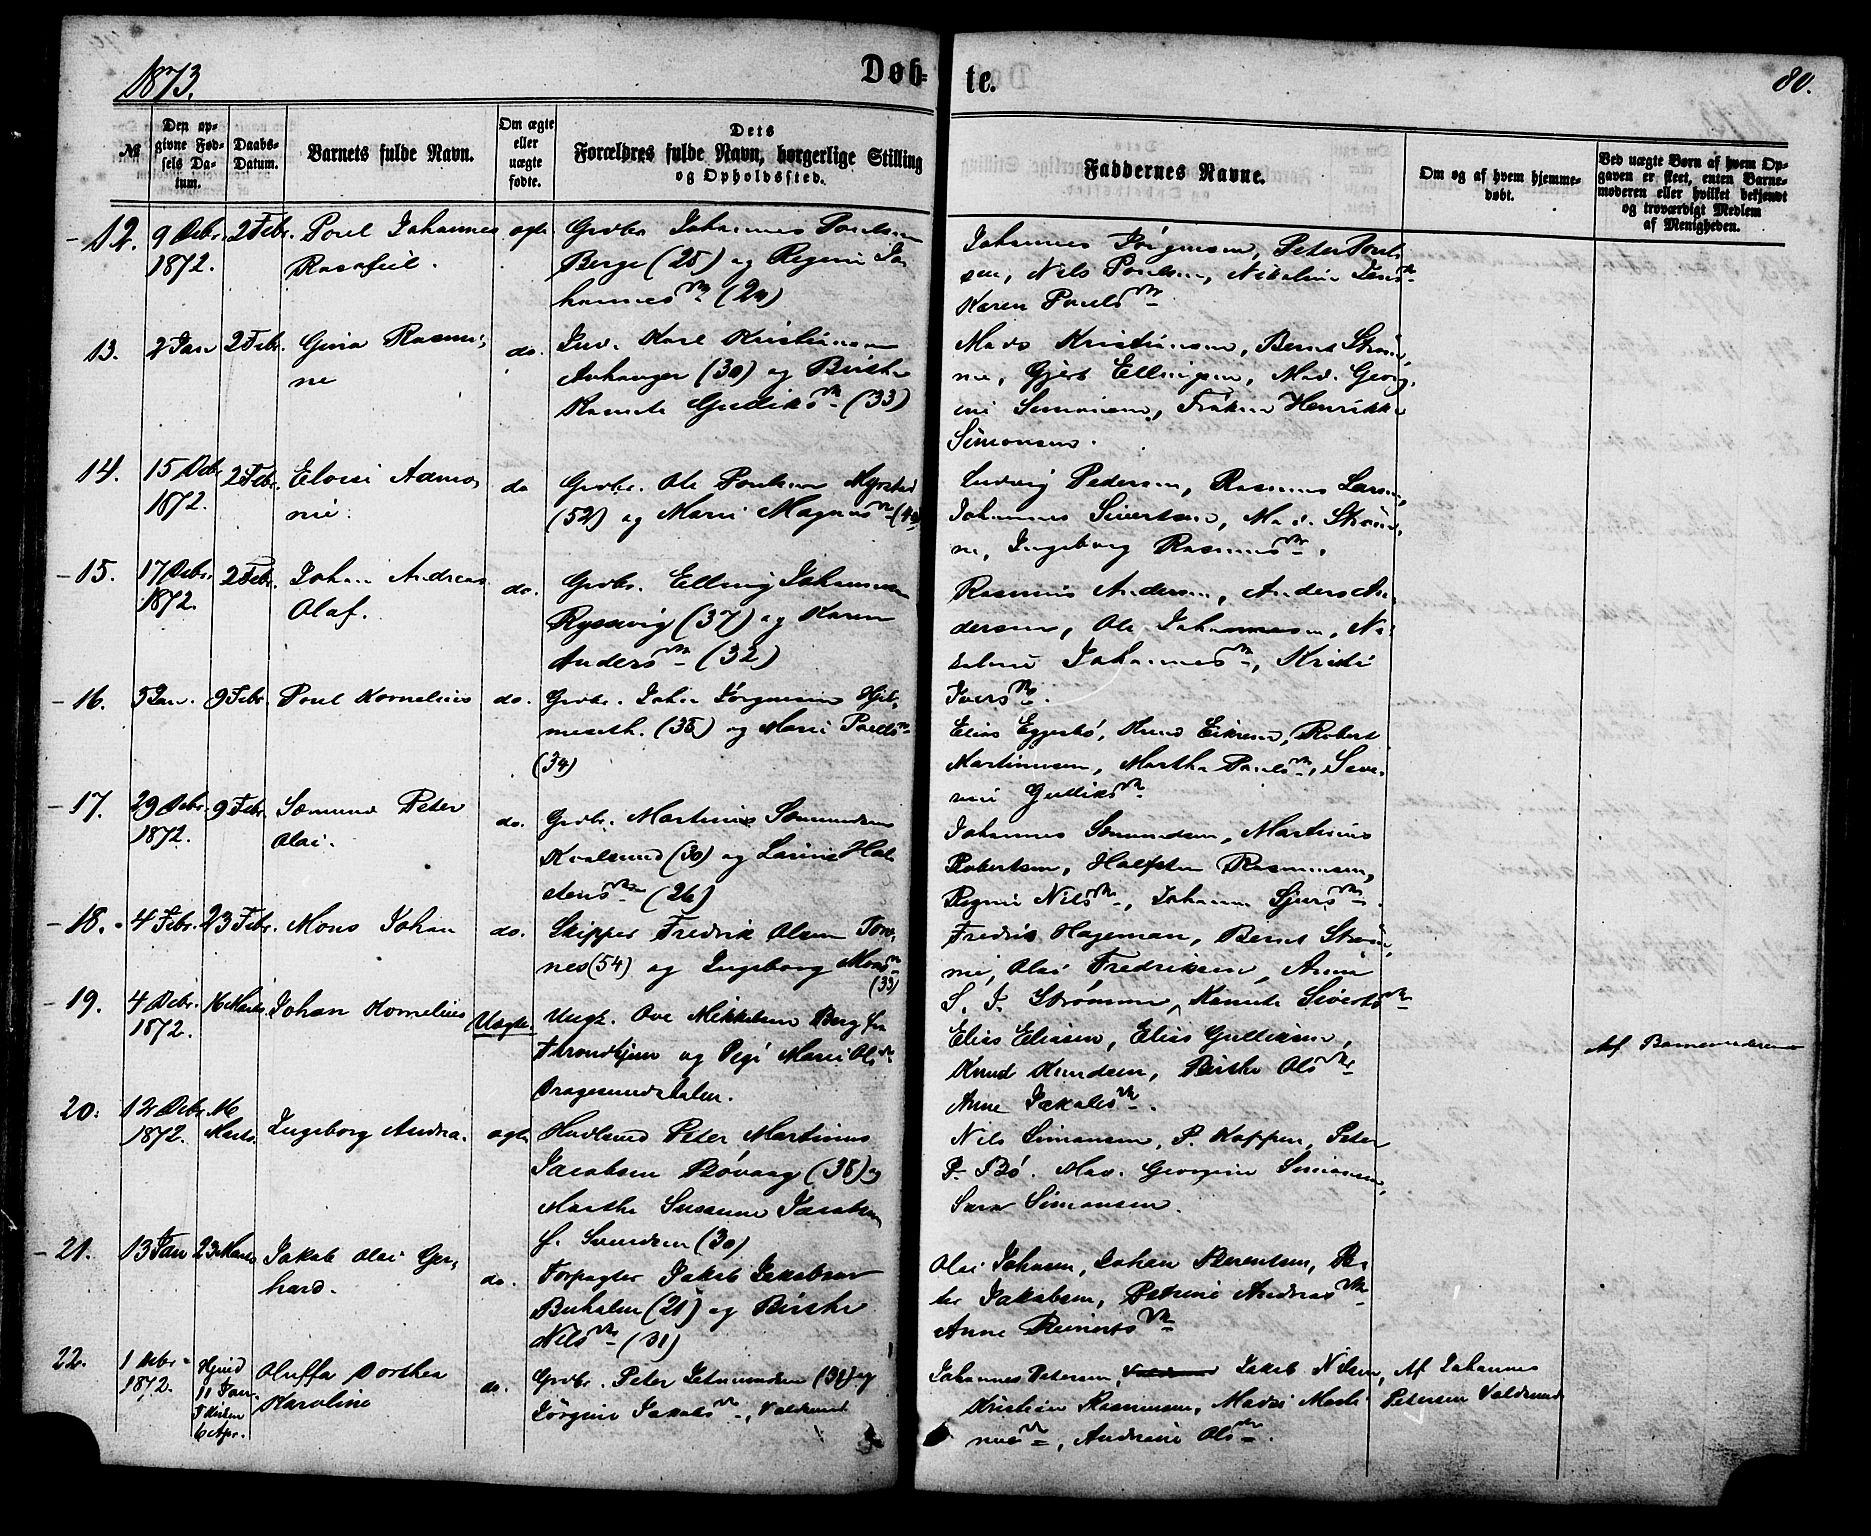 1873.
Døb-
te.
80.
№
Den op-
givne Fød-
sels Da-
tum.
Daabs-
Datum.
Barnets fulde Navn.
Om ægte
eller
uægte
fødte.
Dets
Forældres fulde Navn, borgerlige Stilling
og Opholdssted.
Faddernes Navne.
Om og af hvem hjemme-
døbt.
Ved uægte Børn af hvem Op-
gaven er skeet, enten Barne-
moderen eller hvilket bekjendt
og troværdigt Medlem
af Menigheden.
12. 9 Debr. 2 Febr. Poul Johannes ægte Grdbr. Johannes Poulsen
1872. Berge (25) og Regine Jo-
hannesdtr (24)
Johannes Jørgensen, Peter Poul-
sen, Nils Poulsen, Nikoline Jensdtr
Karen Poulsdtr
13. 2 Jan 2 Febr. Gina Rasmi-
ne
do. Karl Kristiansen
(30) og Birthe
Gulliksdtr (33)
Mads Kristiansen, Bernt Strøm-
me, Gjert Ellingsen, Mad. Georg-
ine Simonsen, Frøken Henrikke
Simonsen.
14. 15 Debr. 2 Febr. Eloise Admo-
1872. nie.
do Grdbr. Ole Poulsen Myrstad
(52) og Marie Magnusdtr
Ludvig Pedersen, Rasmus Larsen,
Johannes Sivertsen, Mad. Strøm-
me, Ingeborg Rasmusdtr.
15. 17 Debr. 2 Febr. Johan Andreas
1872. Olaf.
do. Grdbr. Elling Johannesen
(37) og Karen
Andersdtr (32)
Rasmus Andersen, Anders An-
dersen, Ole Johannesen, Ni-
koline Johannesdtr, Kristi
Iversdtr.
16. 5 Jan. 9 Febr. Poul Kornelius do. Grdbr. Johan Jørgensen Hjel-
meseth. (38) og Marie Poulsdtr
(34)
Elias Eggesbø, Knud Eikrem, Robert
Martinusen, Martha Poulsdtr, Seve-
rine Gulliksdtr
17. 29 Debr. 9 Febr. Sæmund Peter
1872. Olai.
do. Grdbr. Martinus Sæmundsen
Kvalsund (30) og Larine Hal-
stensdtr (26)
Johannes Sæmundsen, Martinus
Robertsen, Halsten Rasmussen,
Regine Nilsdtr, Johanne Sjursdtr.
18. 4 Febr. 23 Febr. Mons Johan do. Skipper Fredrik Olsen Torv-
nes (54) og Ingeborg Monsdtr
(33)
Fredrik Hageman, Bernt Strøm-
me, Olai Fredriksen, Anne
S. J. Strømmen, Kanute Sivertsdtr
19. 4 Debr. 16 Marts. Johan Kornelius Uægte. Ungk. Ove Mikkelsen Berg fra
1872. Throndhjem og Pige Marie Olsdtr
Dragesundshalen.
Elias Eliasen, Elias Gulliksen,
Knud Knudsen, Birthe Olsdtr
Anne Jakobsdtr.
Af Barnemoderen
20. 12 Debr. 16 Ingeborg Andrea. ægte Husmand Peter Martinus
1872. Marts. Jacobsen Bøvaag (38) og
Marthe Susanne Jacobsen
f. Svendsen (30)
Nils Simonsen, P. Koppen, Peter
P. Bø. Mad. Georgine Simonsen,
Sara Simonsen.
21. 13 Jan 23 Marts Jakob Olai Ger-
hard.
do. Forpagter Jakob Jakobsen
(21) og Birthe
Nilsdtr (31)
Olai Johnsen, Johan Berentsen, Pe-
ter Jakobsen, Petrine Andreasdtr
Anne Reinertsdtr
22. 1 Debr. Hjemd
1872. 11 Jan.
I Kirken
6 Apr.
Oluffa Dorthea
Karoline
do. Grdbr. Peter (31) og
Jørgine Jakobsdtr, Valdesund
Johannes Petersen, Jakob Nilsen,
Kristian Rasmussen,
Andrine Olsdtr.
Af Johannes
Petersen Voldsund